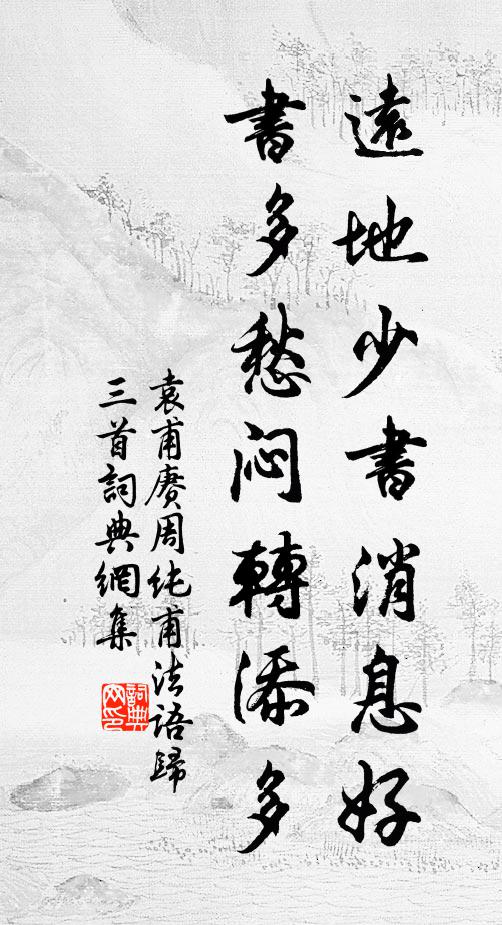 遠地少書消息好
書多愁悶轉添多
袁甫賡周純甫法語歸
三首詞典網集
詞典网印